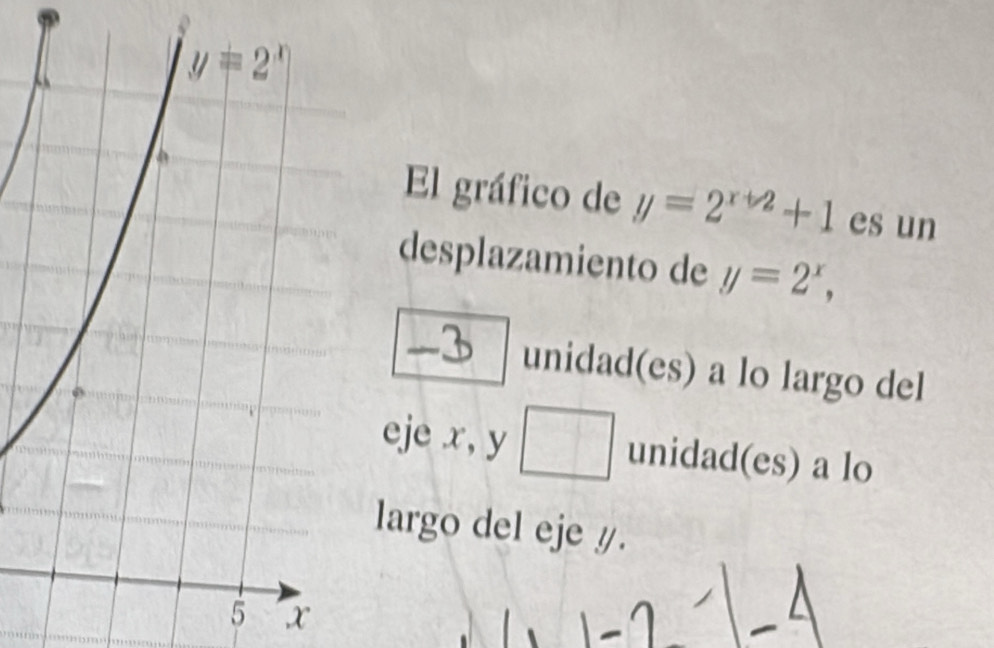 y = 2^x
El gráfico de y = 2^{x+2} + 1 es un
desplazamiento de y = 2^x,
-3 unidad(es) a lo largo del
eje x, y unidad(es) a lo
largo del eje y.
5 x